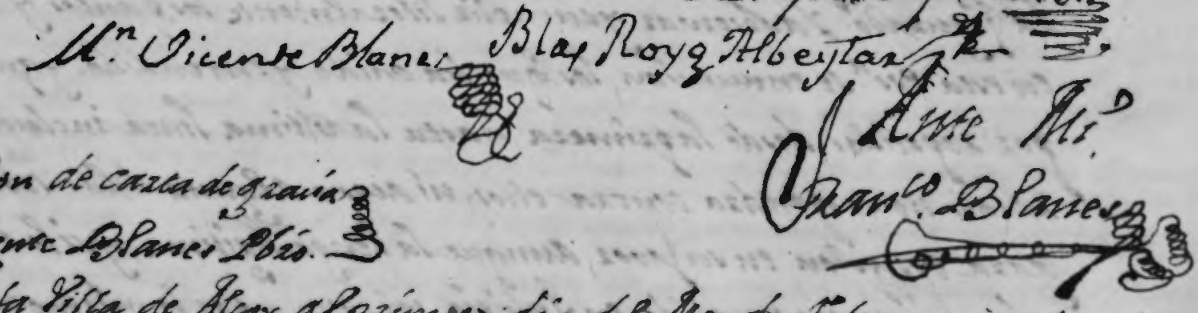 Mn. Vicente Blanes Blas Royg Albeytar
Ante Mi
Franco. Blanes
on de carta de gracia
ente Blanes Pbro.
la Villa de Alcoy a